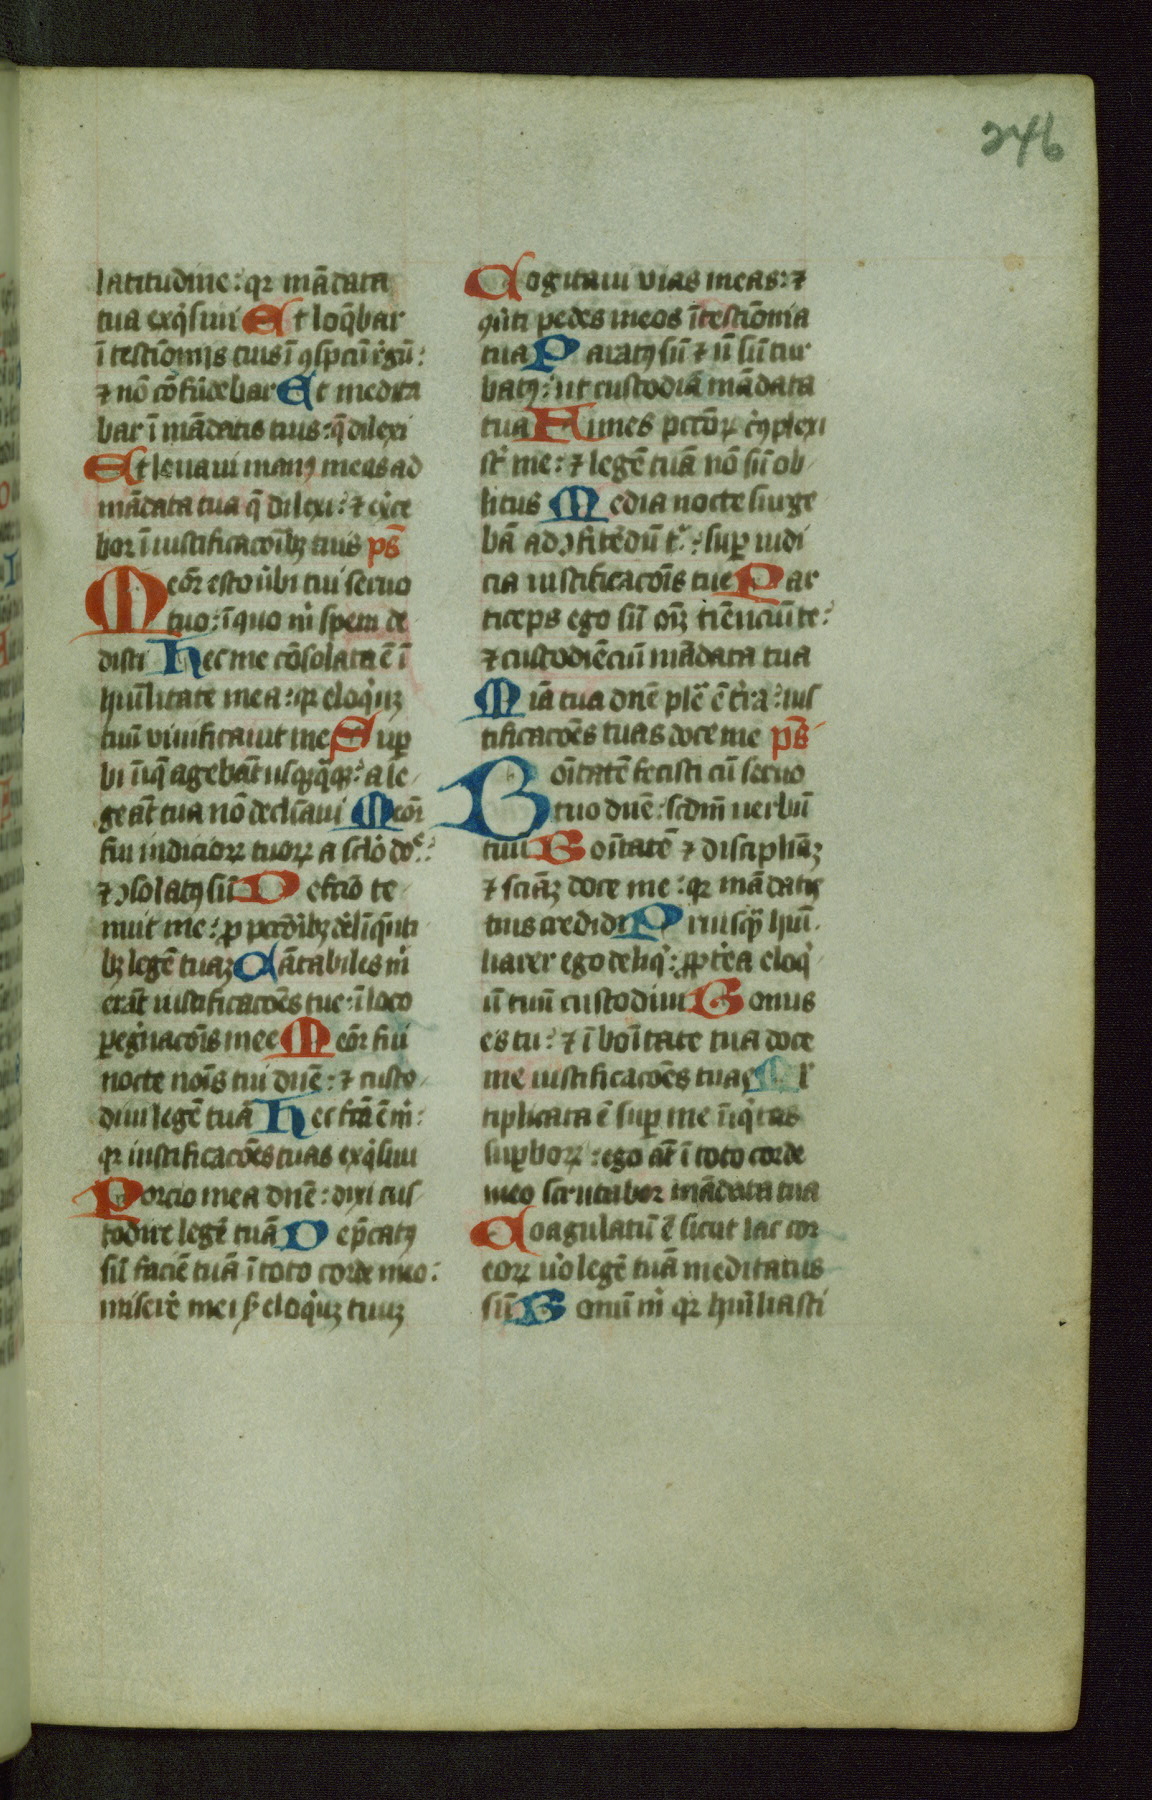 246
latitudine: qr mādata
tua exq̇siui Et loq̄bar
ī testiōnijs tuis ī ɔspctu̇ regū:
⁊ nō cōfūdebar Et medita
bar ī mādatis tuis: q̄ dilexi
Et leuaui manꝰ meas ad
mādata tua q̄ dilexi: ⁊ ex̄ce
bor ī iustificacōibꝫ tuis ps̄
Meōr esto ūbi tui seruo
tuo: ī quo m̄ spem de
disti Hec me cōsolata ē ī
hūlitate mea: qr eloq̇uꝫ
tuū viuificauit me Suꝑ
bi īiq̄ agebāt usqꝫq̄qꝫ: a le
ge āt tua nō declīaui Meōr
fui iudicioꝝ tuoꝝ a sclō doᵉ:
⁊ ɔsolatꝰ sū Defcio te
nuit me: ꝓ pctōribꝫ derlīq̄nti
bꝫ legē tuaꝫ Cātabiles m̄
erāt iustificacōes tue: ī loco
ꝑeġnacōis mee Meōr fui
nocte noīs tui dn̄e: ⁊ custo
diui legē tuā Hec fc̄a ē m̄:
qr iustificacōes tuas exq̇siui
Porcio mea dn̄e: dixi cus
todire legē tuā Dep̄catꝰ
sū faciē tuā ī toto corde meo:
miserē mei ẜ eloq̇uꝫ tuuꝫ
Cogitaui vias meas: ⁊
ɔu̇ti pedes meos ī testiōnia
tua Paratꝰ sū ⁊ nō sū tur
batꝰ: ut custodiā mādata
tua Funes pctōꝝ cūplexi
st̄ me: ⁊ legē tuā nō sū ob
litus Media nocte surge
bā ad ɔfitēdū tͥ: suꝑ iudi
cia iustificacōis tue Par
ticeps ego sū oīꝫ tīēnciū te:
⁊ custodiēciū mādata tua
Mīa tua dn̄e plē ē tr̄ra: ius
tificacōes tuas doce me ps̄
Boītatē fecisti cū seruo
tuo dn̄e: scdm̄ uerbū
tuū Boītatē ⁊ disciplīaꝫ
⁊ sciāꝫ doce me: qr mādatis
tuis credidi Priusq̄ hūi
liarer ego deliq̇: ꝓpterea eloq̇
iū tuū custodiui Bonus
es tu: ⁊ ī boītate tua doce
me iustificacōes tuas Ml
tiplicata ē suꝑ me īiq̇tas
suꝑboꝝ: ego āt ī toto corde
meo scrutabor mādata tua
Coagulatū ē sicut lac cor
eoꝝ u̇o legē tuā meditatus
sū Bonū m̄ qr hūiliasti